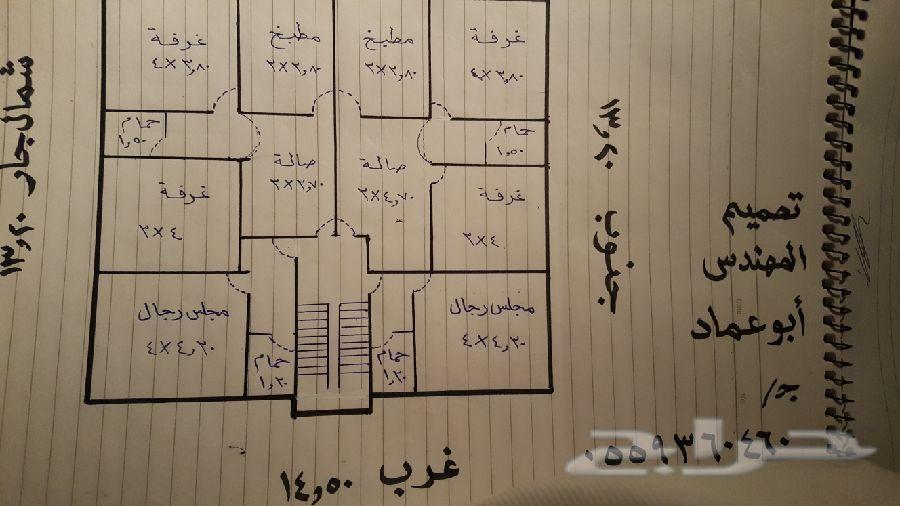 غرفة
٤ X ٣,٨٠
مطبخ
٢ X ٢,٨٠
مطبخ
٢ X ٢,٨٠
غرفة
٤ X ٣,٨٠
حمام
١,٥٠
صالة
٣ X ٣,٧٠
صالة
٣ X ٤,٧٠
حمام
١,٥٠
غرفة
٣ X ٤
غرفة
٣ X ٤
مجلس رجال
٤ X ٤,٢٠
حمام
١,٢٠
حمام
١,٢٠
مجلس رجال
٤ X ٤,٢٠
شمال جار ١٣,٢٠
جنوب ١٣,٢٠
غرب ١٤,٥٠
تصميم
المهندس
أبو عماد
جـ/
٠٥٥٩٣٦٠٤٦٠
حراج